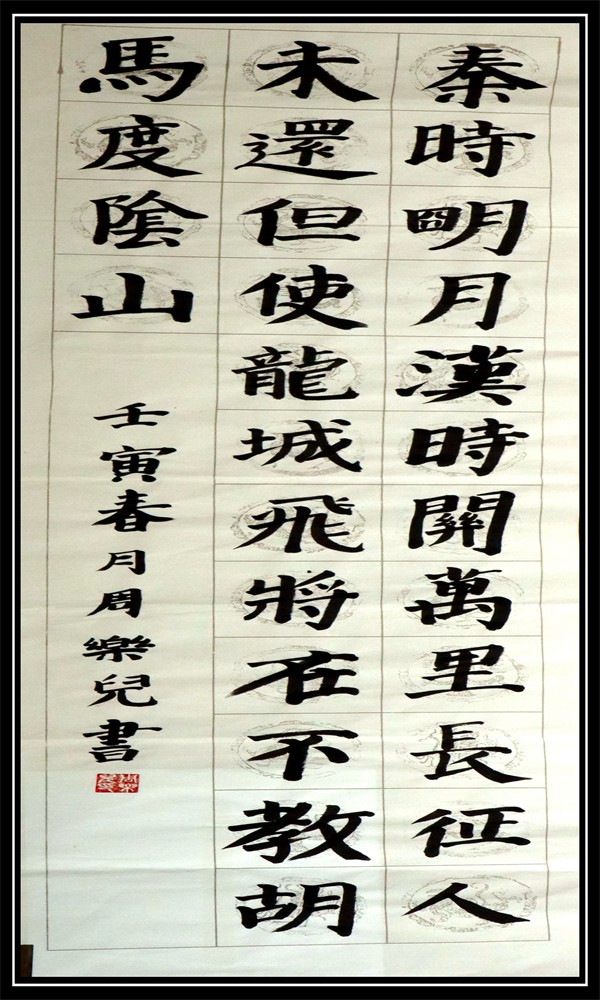 秦時明月漢時關萬里長征人
未還但使龍城飛將在不教胡
馬度陰山
壬寅春月周樂兒書